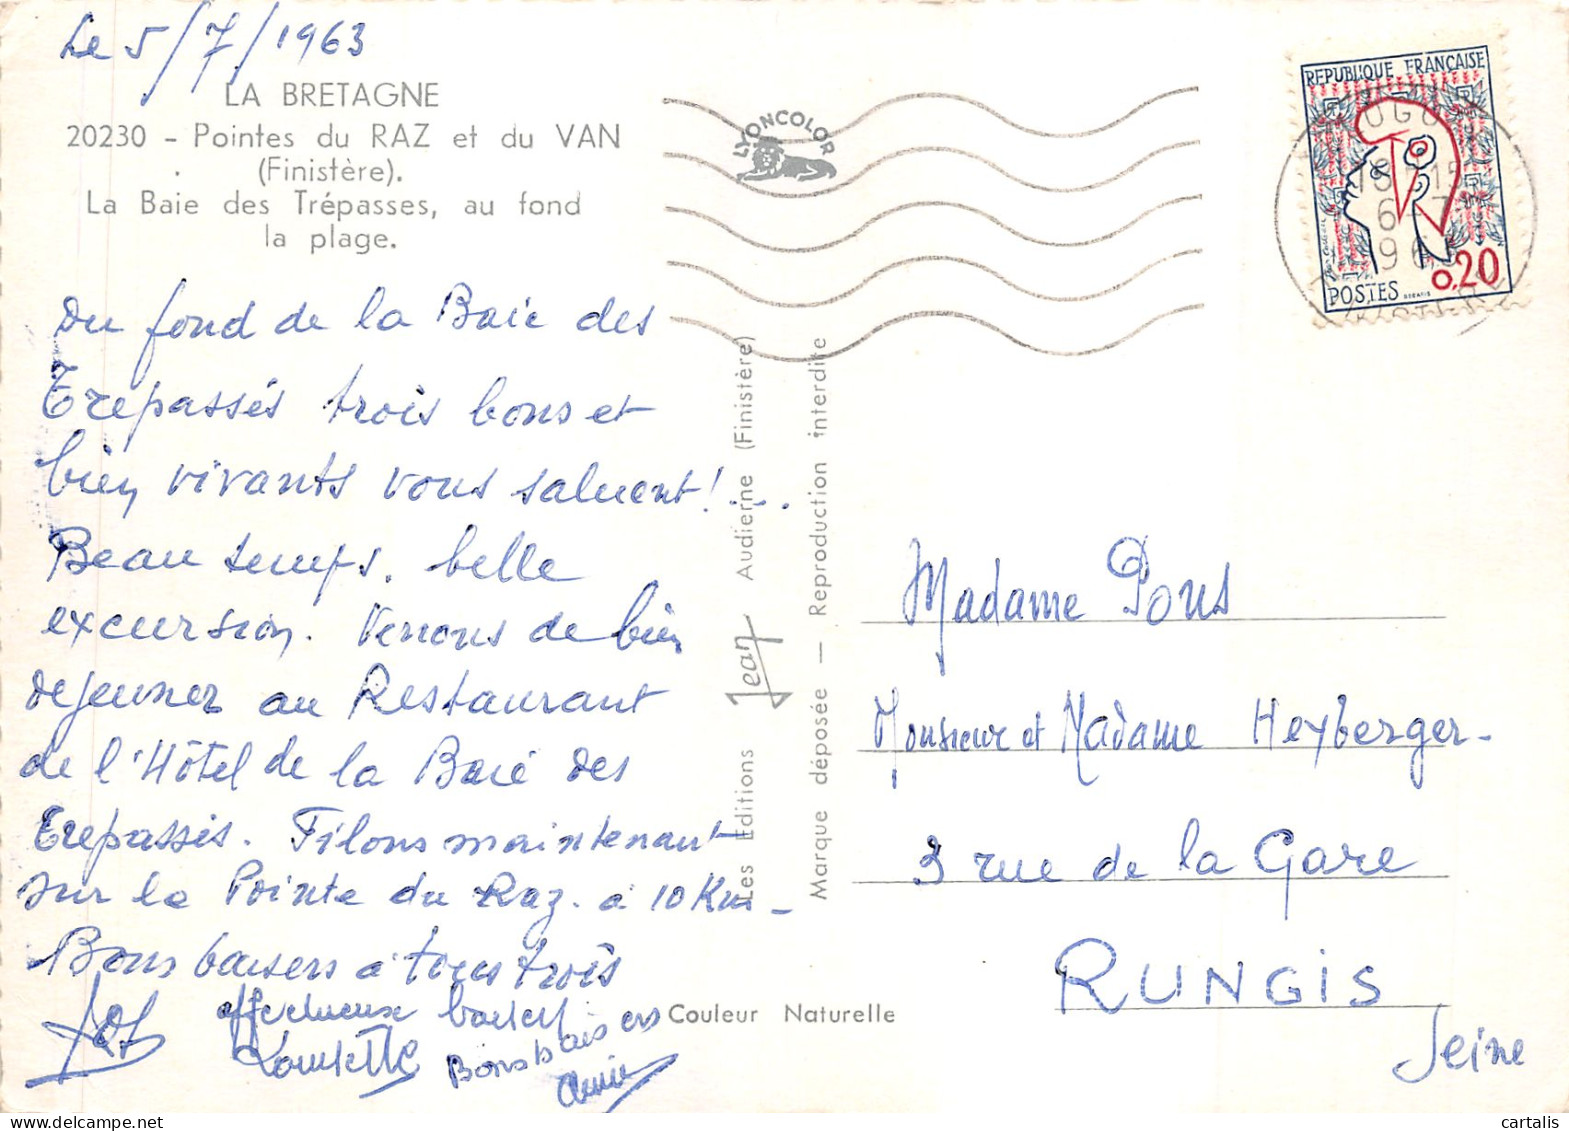 Le 5/7/1963
LA BRETAGNE
20230 - Pointes du RAZ et du VAN
(Finistère).
La Baie des Trépasses, au fond
la plage.
Du fond de la Baie des
Trepassés trois bons et
bien vivants vous saluent!...
Beau temps. belle
excursion. Venons de bien
dejeuner au Restaurant
de l'Hôtel de la Baie des
Trepassés. Filons maintenant
sur la Pointe du Raz. à 10 Km -
Bons baisers à tous trois
affectueux baisers
Bons baisers
Annie
LYONCOLOR
Les Editions Jean Audierne (Finistère)
Marque déposée — Reproduction interdite
Couleur Naturelle
REPUBLIQUE FRANÇAISE
0,20
POSTES
Madame Pons
Monsieur et Madame Heyberger-
3 rue de la Gare
RUNGIS
Seine
cartalis